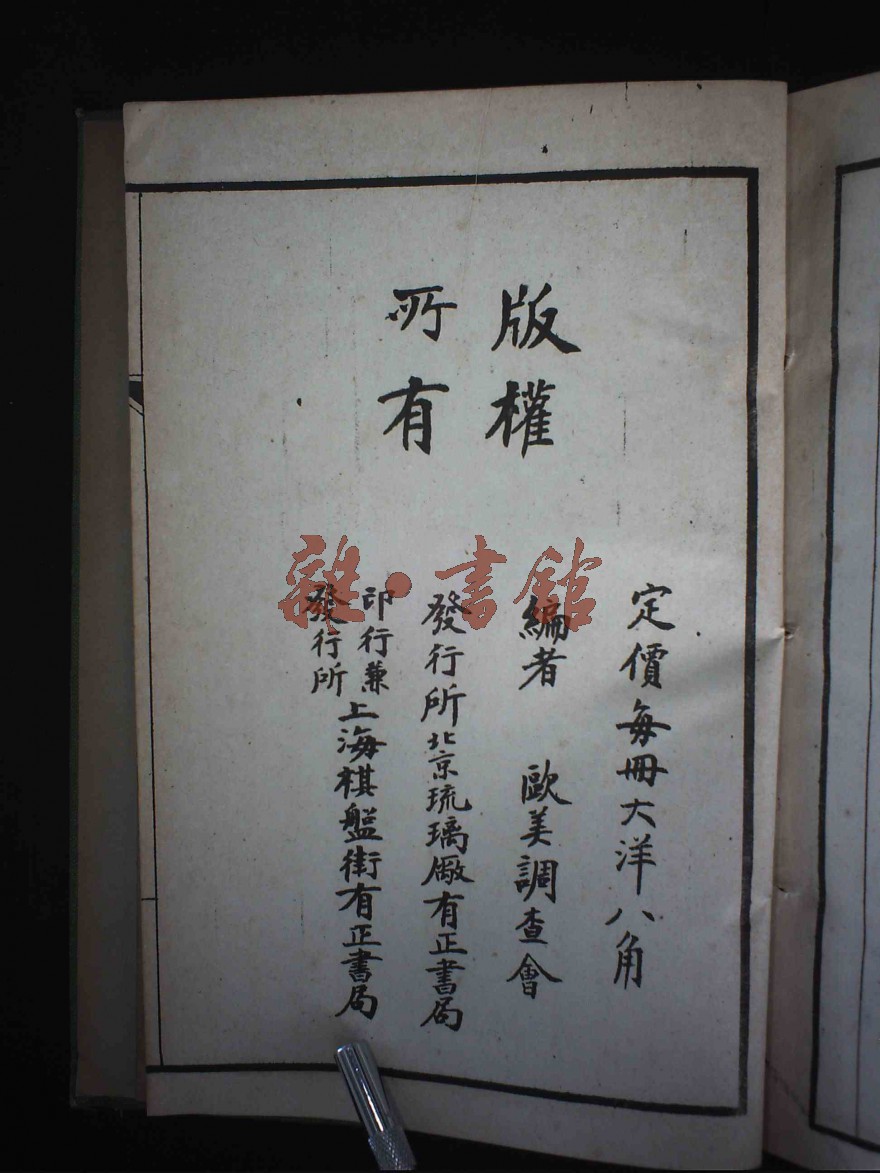 版權
所有
定價每冊大洋八角
編者 歐美調查會
發行所北京琉璃廠有正書局
印行兼
發行所
上海棋盤街有正書局
雜·書館